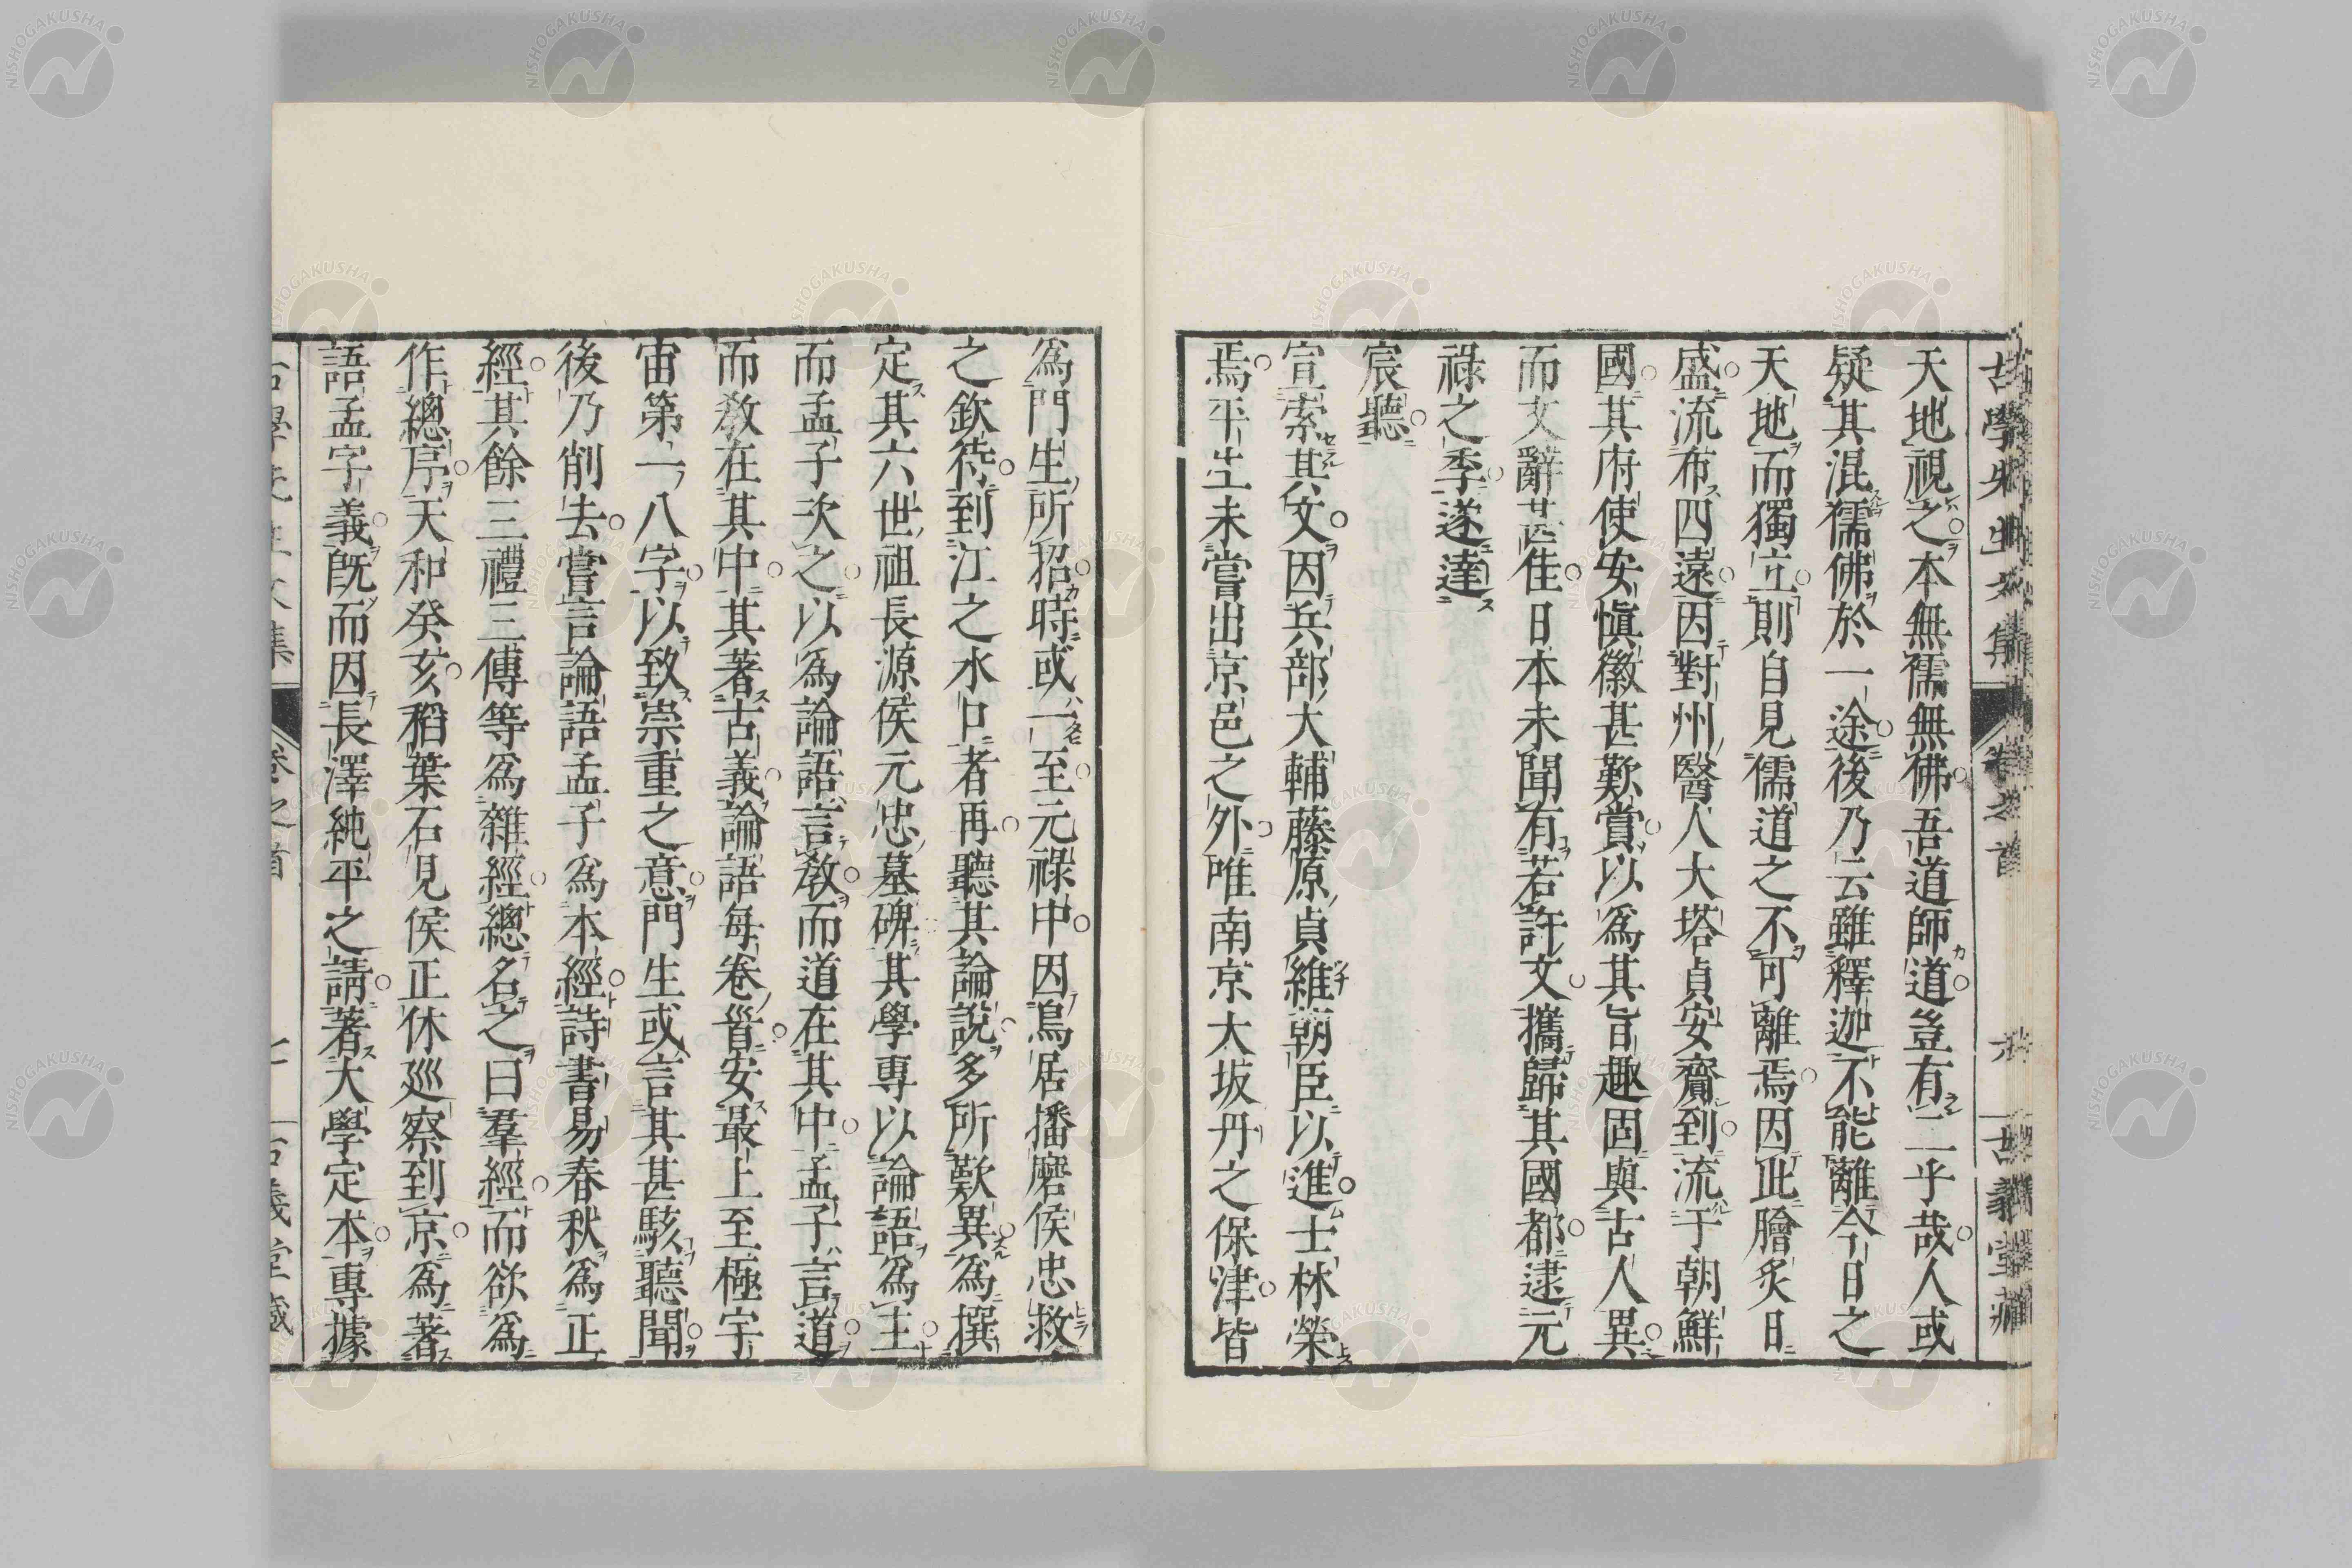 古學先生文集 卷之首 六 古義堂藏
天地視之本無儒無佛吾道師道豈有二乎哉人或
疑其混儒佛於一途後乃云雖釋迦不能離今日之
天地而獨立則自見儒道之不可離焉因此膾炙日
盛流布四遠因對州醫人大塔貞安齎到流于朝鮮
國其府使安愼徽甚歎賞以爲其旨趣固與古人異
而文辭甚佳日本未聞有若許文攜歸其國都逮元
祿之季遂達
宸聽
宣索其文因兵部大輔藤原貞維朝臣以進士林榮
焉平生未嘗出京邑之外唯南京大坂丹之保津皆
爲門生所招時或一至元祿中因鳥居播磨侯忠救
之欽待到江之水口者再聽其論說多所歎異爲撰
定其六世祖長源侯元忠墓碑其學專以論語爲主
而孟子次之以爲論語言教而道在其中孟子言道
而教在其中其著古義論語每卷首安最上至極宇
宙第一八字以致崇重之意門生或言其甚駭聽聞
後乃削去嘗言論語孟子爲本經詩書易春秋爲正
經其餘三禮三傳等爲雜經總名之曰羣經而欲爲
作總序天和癸亥稻葉石見侯正休巡察到京爲著
語孟字義旣而因長澤純平之請著大學定本專據
古學先生文集 卷之首 七 古義堂藏
NISHOGAKUSHA